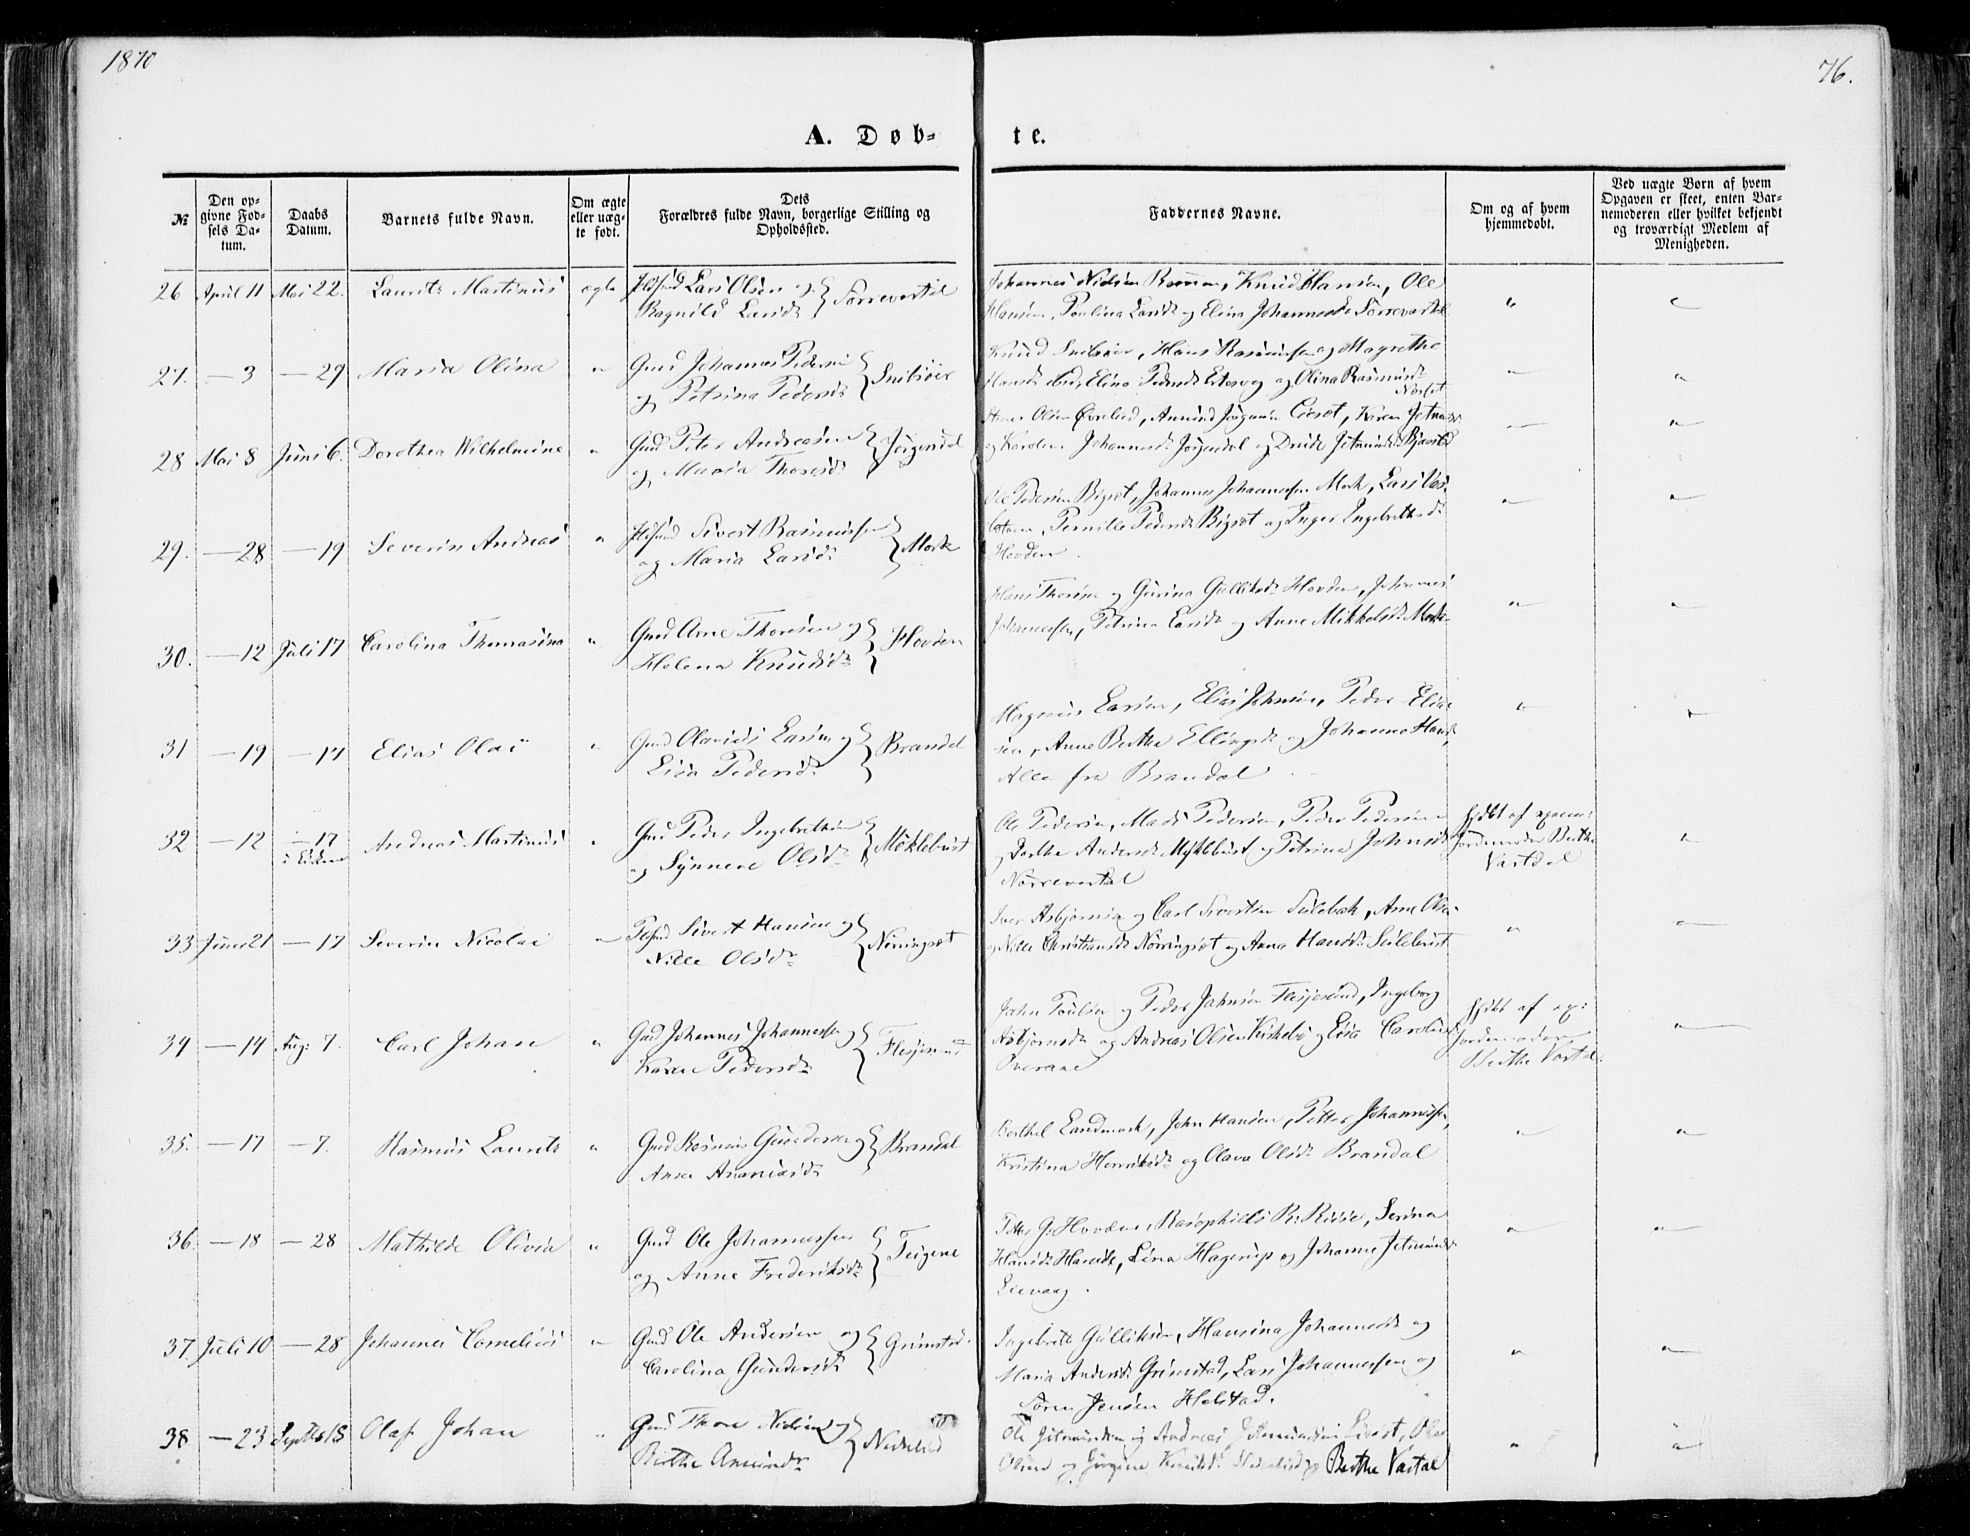 1870
76.
A. Døb-
te.
№
Den op-
givne Fød-
sels Da-
tum.
Daabs
Datum.
Barnets fulde Navn.
Om ægte
eller uæg-
te født.
Dets
Forældres fulde Navn, borgerlige Stilling og
Opholdssted.
Faddernes Navne.
Om og af hvem
hjemmedøbt.
Ved uægte Børn af hvem
Opgaven er skeet, enten Bar-
nemoderen eller hvilket bekjendt
og troværdigt Medlem af
Menigheden.
26 April 11 Mai 22. Laurits Martinus ægte Lars Olsen og
Ragnild Larsd. Sørrevartdal
Johannes Nielsen Knud Hansen, Ole
Hansen, Paulina Larsd. og Elina Johannesd. Sørrevartdal
27. — 3 — 29 Maria Olina " Gmd Johannes Pedersen
og Petrina Pedersd. Snibsøir
Knud Snibsøir, Hans Rasmussen og Magrethe
Hansd. ibid, Elina Pedersd. Ertesvog og Olina Rasmusd.
28 Mai 8 Juni 6. Dorothea Wilhelmine " Gmd Peter Andreasen
og Maria Thoresd. Jørgendal
Olsen Øvrelied, Amund Jørgensen Liset, Karen Jetmundsd.
og Karoline Johannesd. Jørgendal og Jetmundsd. Bjaastad
29. — 28 — 19 Severin Andreas " Sivert Rasmussen
og Maria Larsd. Mork
Ole Pedersen Bigset, Johannes Johannessen Mork, Lars
Pernille Pedersd. Bigset og Inger Ingebrethsd.
Hovden.
30. — 12 Juli 17 Carolina Thomasina " Gmd Arne Thomsen og
Helena Knudsd. Hovden
Hans Thorsen og Gurina Gulliksd. Hovden, Johannes
Johannessen, Petrina Larsd. og Anne Mikkelsd. Mork
31 — 19 — 17 Elias Olai " Gmd Olavius Larsen og
Lisa Pedersd. Brandal
Magnus Larsen, Elias Johnsen, Peder Elias-
sen, Anne Berthe Ellingsd. og Johanne Hansd.
Alle fra Brandal
32 — 12 — 17 Andreas Martinus " Gmd Peder Ingebrethsen
og Synneve Olsd. Møklebust
Ole Pedersen, Mads Pedersen, Peder Pedersen
og Dorthe Andersd. Myklebust og Petrina Johnsd.
Nørrevartdal
hjdbt af
Jordemoder Berthe
Vartdal
33 Juni 21 — 17 Severin Nicolai " Sivert Hansen og
Nille Olsd. Nørringset
Iver Asbjørnsen og Carl Sivertsen Seilebak, Arne Olsen
og Nille Christiansd. Nørringset og Anna Hansd. Seilebust
34 — 14 Aug: 7. Carl Johan " Gmd Johannes Johannessen og
Karen Pedersd. Flesjesund
John Poulsen og Peder Johnsen Flesjesund, Ingeborg
Asbjørnsd. og Andreas Olsen Kirkebø og Lisa Carolusd.
Overaae
hjdbt af
Jordemoder
Berthe Vartdal
35. — 17 — 7. Rasmus Laurits " Gmd Rasmus Gundersen og
Anne Ananiasd. Brandal
Berthel Landmark, John Hansen, Petter Johannessen,
Kristina Henriksd. og Olava Olsd. Brandal
36. — 18 — 28 Mathilde Olivia " Gmd Ole Johannessen
og Anne Frederiksd. Teigene
Petter G. Hovden, Rasmus Riise, Serina
Hansd. Hareide, Lina Hagerup og Johanne Jetmundsd.
Lievaag.
37 Juli 10 — 28 Johannes Cornelius " Gmd Ole Andersen og
Carolina Gundersd. Grimstad.
Ingebrett Gulliksen, Hansina Johannesd. og
Maria Andersd. Grimstad, Lars Johannessen og
Søren Jensen Helstad.
38 — 23 Septbr 18 Olaf Johan " Gmd Thore Nielsen og
Berthe Amundsd. Nedrelied
Ole Jetmundsen og Andreas Jetmundsen Liset, Ole
Olsen og Jørgine Knudsd. Nedrelied og Berthe Vartdal